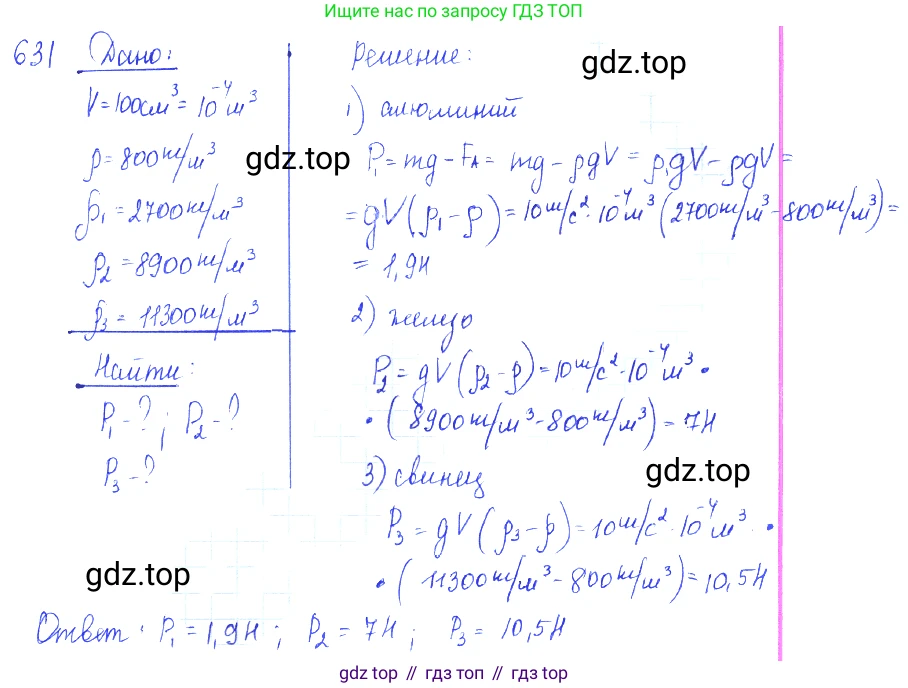 Ищите нас по запросу ГДЗ ТОП
631 Дано:
V=100см³=10⁻⁴м³
ρ=800кг/м³
ρ₁=2700кг/м³
ρ₂=8900кг/м³
ρ₃= 11300кг/м³
Найти:
P₁-?; P₂-?
P₃-?
Решение:
1) алюминий
P₁=mg-Fₐ=mg-ρgV=ρ₁gV-ρgV=
=gV(ρ₁-ρ)=10м/с²·10⁻⁴м³(2700кг/м³-800кг/м³)=
= 1,9Н
2) железо
P₂=gV(ρ₂-ρ)=10м/с²·10⁻⁴м³·
·(8900кг/м³-800кг/м³)=7Н
3) свинец
P₃=gV(ρ₃-ρ)=10м/с²·10⁻⁴м³·
·(11300кг/м³-800кг/м³)=10,5Н
Ответ: P₁=1,9Н; P₂=7Н; P₃=10,5Н
gdz.top
gdz.top
gdz.top
gdz.top
gdz top // гдз топ // гдз.top